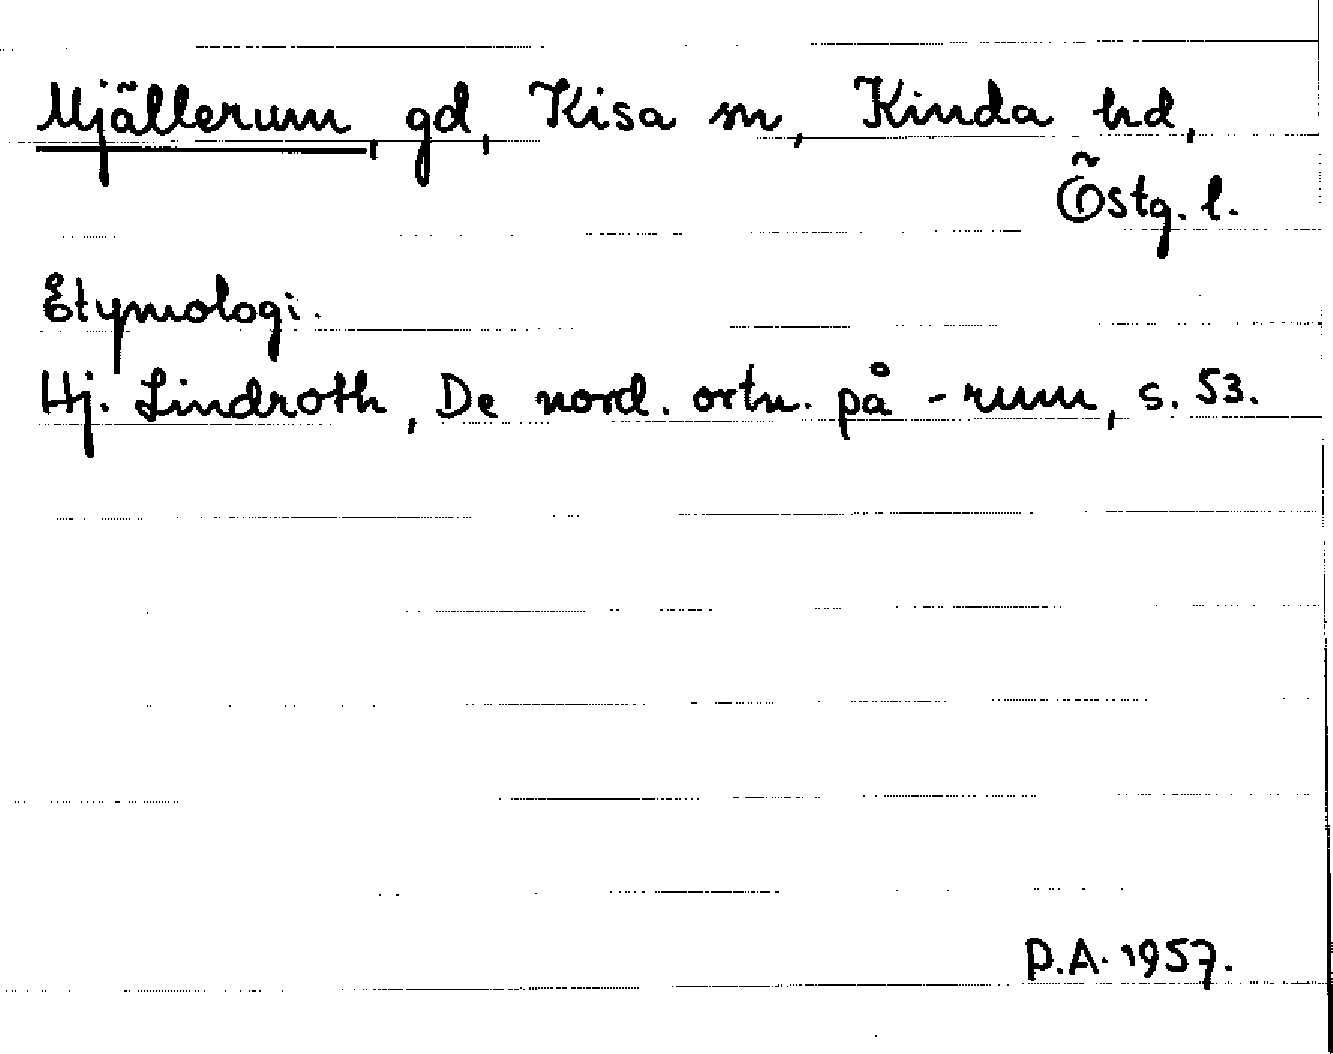 Mjällerum, gd, Kisa sn, Kinda hd,
Östg. l.
Etymologi.
Hj. Lindroth, De nord. ortn. på -rum, s. 53.
D.A. 1957.